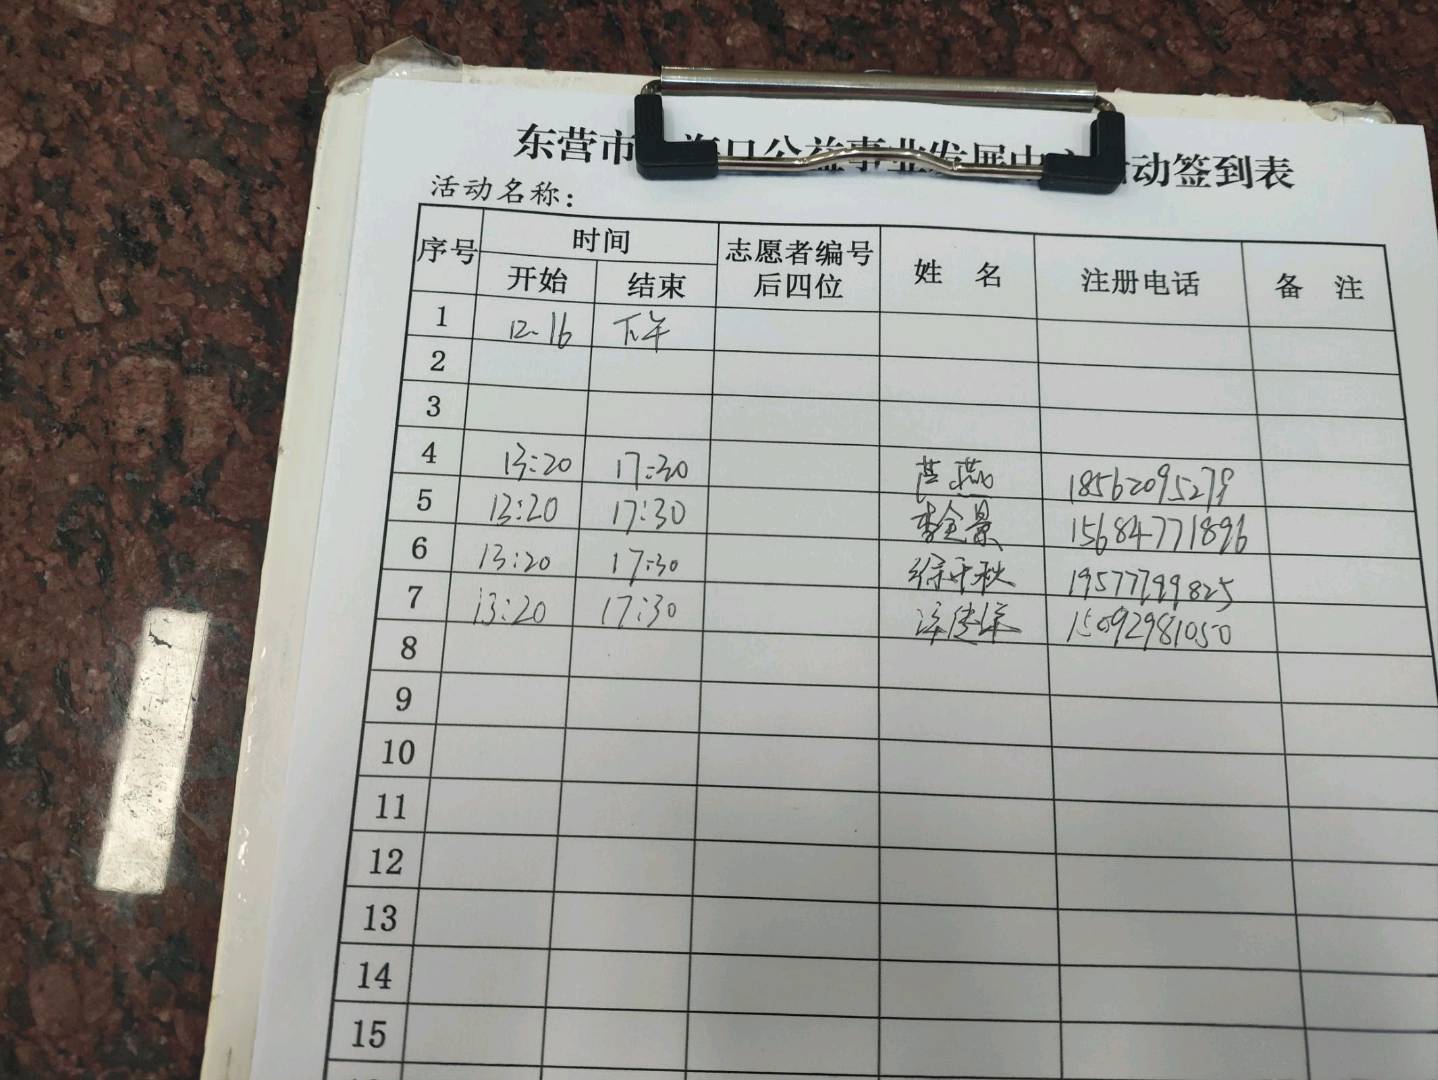 东营市 海口公益事业发展中心活动签到表
活动名称：
序号 时间 志愿者编号后四位 姓 名 注册电话 备 注
开始 结束
1 12-16 下午
2
3
4 13:20 17:30 燕 18562095279
5 13:20 17:30 李金景 15684771896
6 13:20 17:30 徐千秋 19577799825
7 13:20 17:30 15092981050
8
9
10
11
12
13
14
15